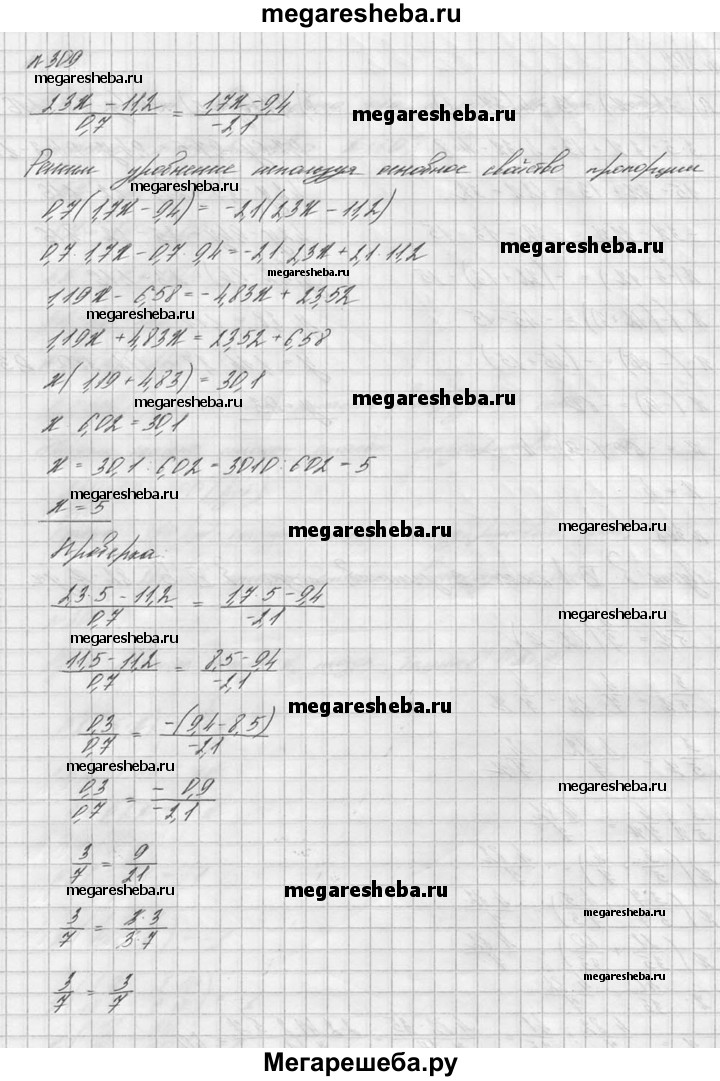 megaresheba.ru
№309
megaresheba.ru
2,3x - 11,2 / 0,7 = 1,7x - 9,4 / -2,1
megaresheba.ru
Решим уравнение используя основное свойство пропорции
megaresheba.ru
0,7(1,7x - 9,4) = -2,1(2,3x - 11,2)
0,7·1,7x - 0,7·9,4 = -2,1·2,3x + 2,1·11,2
megaresheba.ru
megaresheba.ru
1,19x - 6,58 = -4,83x + 23,52
megaresheba.ru
1,19x + 4,83x = 23,52 + 6,58
x(1,19 + 4,83) = 30,1
megaresheba.ru
megaresheba.ru
x 6,02 = 30,1
x = 30,1 : 6,02 = 3010 : 602 = 5
megaresheba.ru
x = 5
megaresheba.ru
megaresheba.ru
Проверка:
2,3·5 - 11,2 / 0,7 = 1,7·5 - 9,4 / -2,1
megaresheba.ru
megaresheba.ru
11,5 - 11,2 / 0,7 = 8,5 - 9,4 / -2,1
megaresheba.ru
0,3 / 0,7 = -(9,4 - 8,5) / -2,1
megaresheba.ru
0,3 / 0,7 = - 0,9 / -2,1
megaresheba.ru
3 / 7 = 9 / 21
megaresheba.ru
megaresheba.ru
megaresheba.ru
3 / 7 = 3·3 / 3·7
megaresheba.ru
3 / 7 = 3 / 7
Мегарешеба.ру